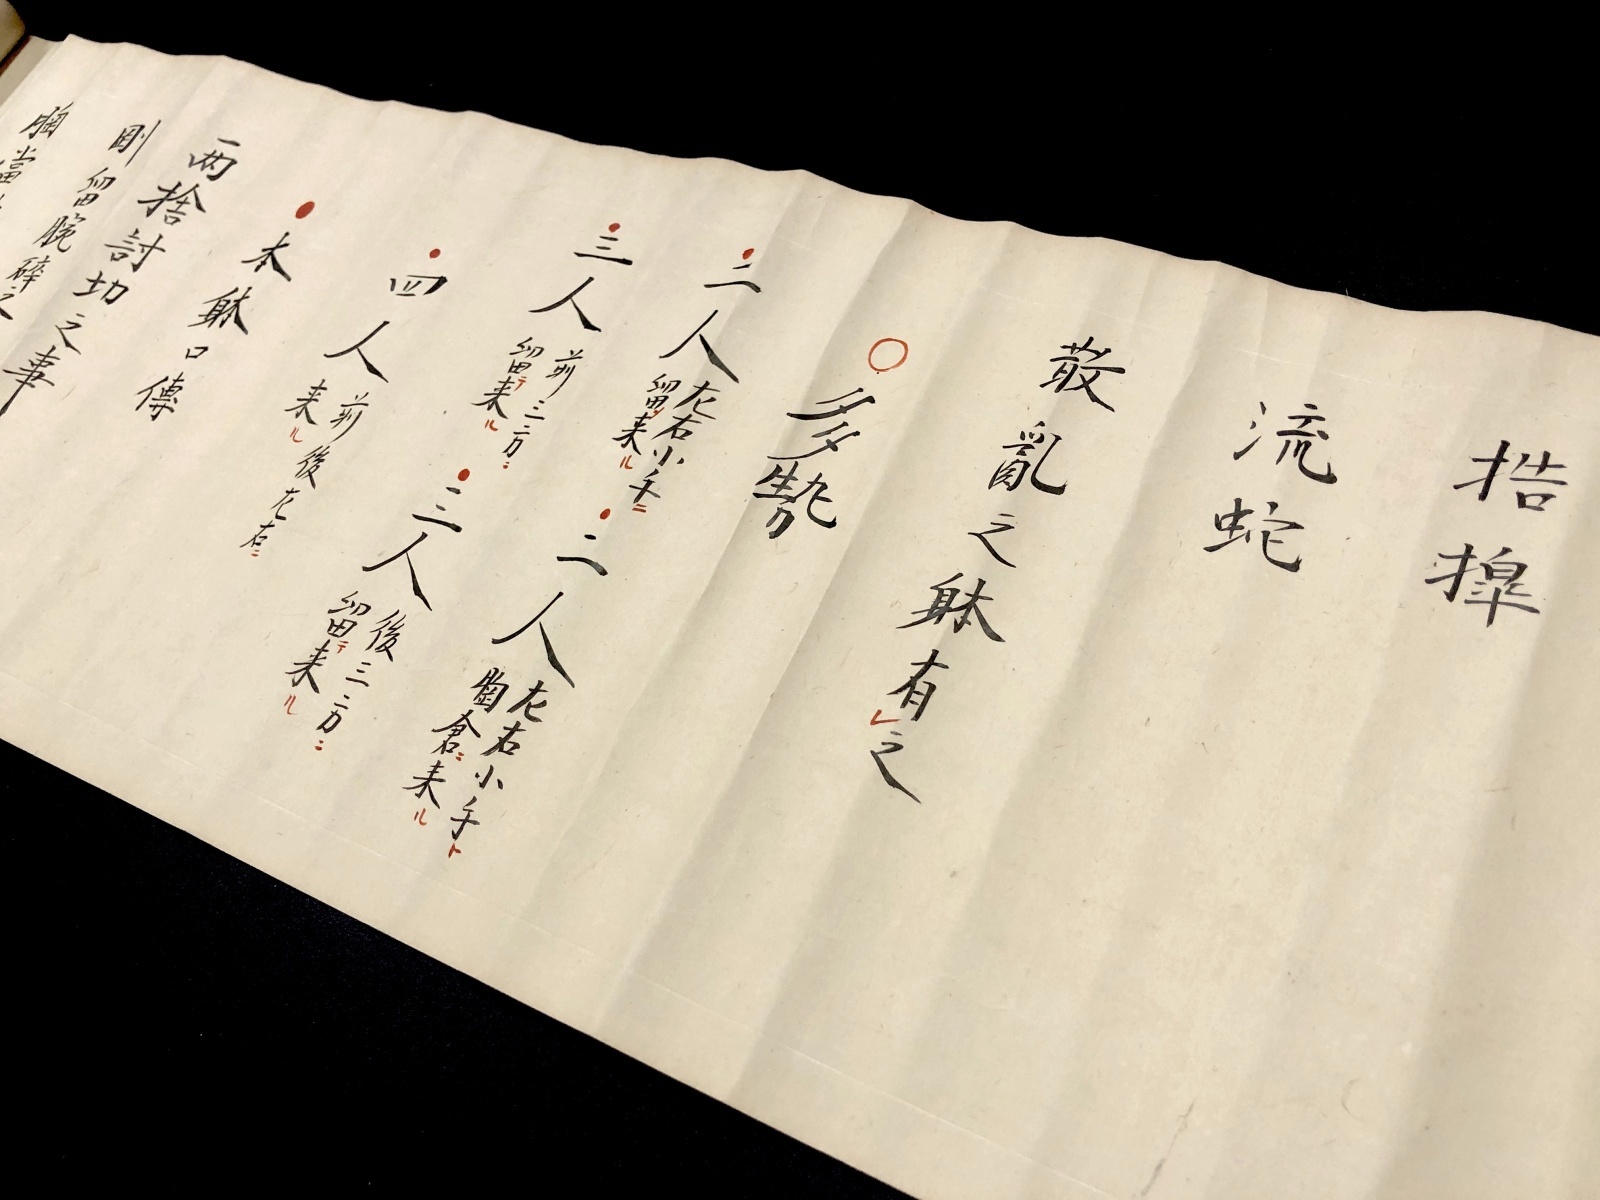 捁捍
流蛇
散亂之躰有レ之
○多勢
・二人 左右小手ニ
留メ来ル
・二人 左右小手ト
胸倉ニ来ル
・三人 前三方ニ
留テ来ル
・三人 後三方ニ
留テ来ル
・四人 前後左右ニ
来ル
・本躰口傳
両捨討切之事
剛留腕碎之
胸當